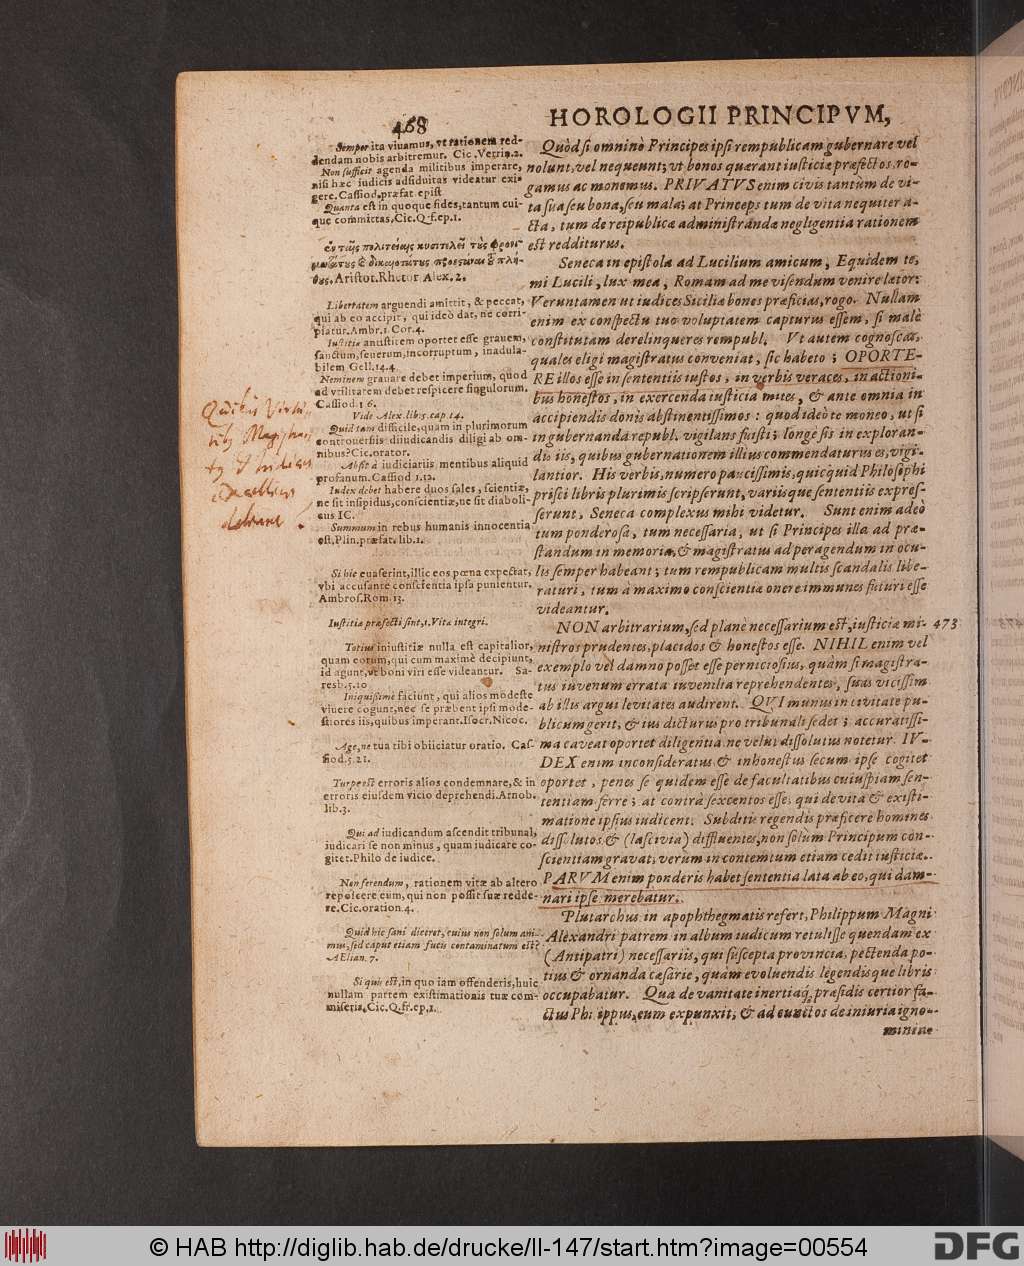 468
HOROLOGII PRINCIPVM,
Semper ita viuamus, vt rationem red-
dendam nobis arbitremur. Cic. Verrin. 2.
Non sufficit agenda militibus imperare,
nisi hæc iudicis adsiduitas videatur exi-
gere. Cassiod. præfat. epist.
Quanta est in quoque fides, tantum cui-
que committas, Cic. Q. f. ep. 1.
Aristot. Rhetor Alex. 2.
Libertatem arguendi amittit, & peccat,
qui ab eo accipit, qui ideò dat, ne corri-
piatur. Ambr. 1. Cor. 4.
Iustitiæ antistitem oportet esse grauem,
sanctum, seuerum, incorruptum, inadula-
bilem Gell. 14.4
Neminem grauare debet imperium, quod
ad vtilitatem debet respicere singulorum.
Cassiod. 1 6.
Vide Alex. lib. 5. cap. 14.
Quid tam difficile, quam in plurimorum
controuersiis diiudicandis diligi ab om-
nibus? Cic. orator.
Absit à iudiciariis mentibus aliquid
profanum. Cassiod 1.12.
Iudex debet habere duos sales, scientiæ,
ne sit insipidus, conscientiæ, ne sit diaboli-
cus IC.
Summum in rebus humanis innocentia
est, Plin. præfat. lib. 1.
Si hic euaserint, illic eos pœna expectat,
vbi accusante conscientia ipsa punientur,
Ambros. Rom. 13.
Iustitiæ præfecti sint, 1. Vitæ integri.
Totius iniustitiæ nulla est capitalior,
quam eorum, qui cum maximè decipiunt,
id agunt, vt boni viri esse videantur. Sa-
resb. 5.10
Iniquissimè faciunt, qui alios modestè
viuere cogunt, nec se præbent ipsi mode-
stiores iis, quibus imperant. Isocr. Nicoc.
Age, ne tua tibi obiiciatur oratio. Cas-
siod. 5. 21.
Turpe est erroris alios condemnare, & in
erroris eiusdem vicio deprehendi. Arnob.
lib. 3.
Qui ad iudicandum ascendit tribunal,
iudicari se non minus, quam iudicare co-
gitet. Philo de iudice.
Non ferendum, rationem vitæ ab altero
reposcere eum, qui non possit suæ redde-
re. Cic. oration. 4.
Quid hic sani dictret, cuius non solum ani-
mus, sed caput etiam fucis contaminatum est?
AElian. 7.
Si quis est, in quo iam offenderis, huic
nullam partem existimationis tuæ com-
miseris. Cic. Q. fr. ep. 1.
Quòd si omninò Principes ipsi rempublicam gubernare vel
nolunt, vel nequeunt; vt bonos quærant iusticiæ præfectos, ro-
gamus ac monemus. PRIVATVS enim ciuis tantùm de vi-
ta sua seu bona, seu mala; at Princeps tum de vita nequiter a-
cta, tum de reipublicæ administrandæ negligentia rationem
est redditurus.
Seneca in epistola ad Lucilium amicum, Equidem te,
mi Lucili, lux mea, Romam ad me visendum venire lætor:
Veruntamen ut iudices Siciliæ bonos præficias, rogo. Nullam
enim ex conspectu tuo voluptatem capturus essem, si malè
constitutam derelinqueres rempubl. Ut autem cognoscas,
quales eligi magistratus conveniat, sic habeto; OPORTE-
RE illos esse in sententiis iustos, in verbis veraces, in actioni-
bus honestos, in exercenda iusticia mites, & ante omnia in
accipiendis donis abstinentissimos: quod ideò te moneo, ut si
in gubernanda republ. vigilans fuisti; longè sis in exploran-
dis iis, quibus gubernationem illius commendaturus es, vigi-
lantior. His verbis, numero paucissimis, quicquid Philosophi
prisci libris plurimis scripserunt, variisque sententiis expres-
serunt, Seneca complexus mihi videtur. Sunt enim adeò
tum ponderosa, tum necessaria, ut si Principes illa ad præ-
standum in memoria, & magistratus ad peragendum in ocu-
lis semper habeant; tum rempublicam multis scandalis libe-
raturi, tum à maximo conscientiæ onere immunes futuri esse
videantur.
NON arbitrarium, sed planè necessarium est, iusticiæ mi- 473
nistros prudentes, placidos & honestos esse. NIHIL enim vel
exemplo vel damno posset esse perniciosius, quàm si magistra-
tus iuvenum errata iuvenilia reprehendentes, suas vicissim
ab illis argui levitates audirent. QVI munus in civitate pu-
blicum gerit, & ius dicturus pro tribunali sedet; accuratissi-
ma caveat oportet diligentia ne velut dissolutus notetur. IV-
DEX enim inconsideratus & inhonestus secum ipse cogitet
oportet, penes se quidem esse de facultatibus cuiuspiam sen-
tentiam ferre; at contrà sexcentos esse, qui de vita & existi-
matione ipsius iudicent. Subditis regendis præficere homines
dissolutos & (lascivia) diffluentes, non solùm Principum con-
scientiam gravat, verùm in contemtum etiam cedit iusticiæ.
PARVM enim ponderis habet sententia lata ab eo, qui dam-
nari ipse merebatur.
Plutarchus in apophthegmatis refert, Philippum Magni
Alexandri patrem in album iudicum retulisse quendam ex
(Antipatri) necessariis, qui suscepta provincia, pectenda po-
tius & ornanda cæsarie, quàm evoluendis legendisque libris
occupabatur. Qua de vanitate inertiaq; præsidis certior fa-
ctus Philippus, eum expunxit, & ad eunctos de iniuria igno-
miniæ
© HAB http://diglib.hab.de/drucke/ll-147/start.htm?image=00554
DFG